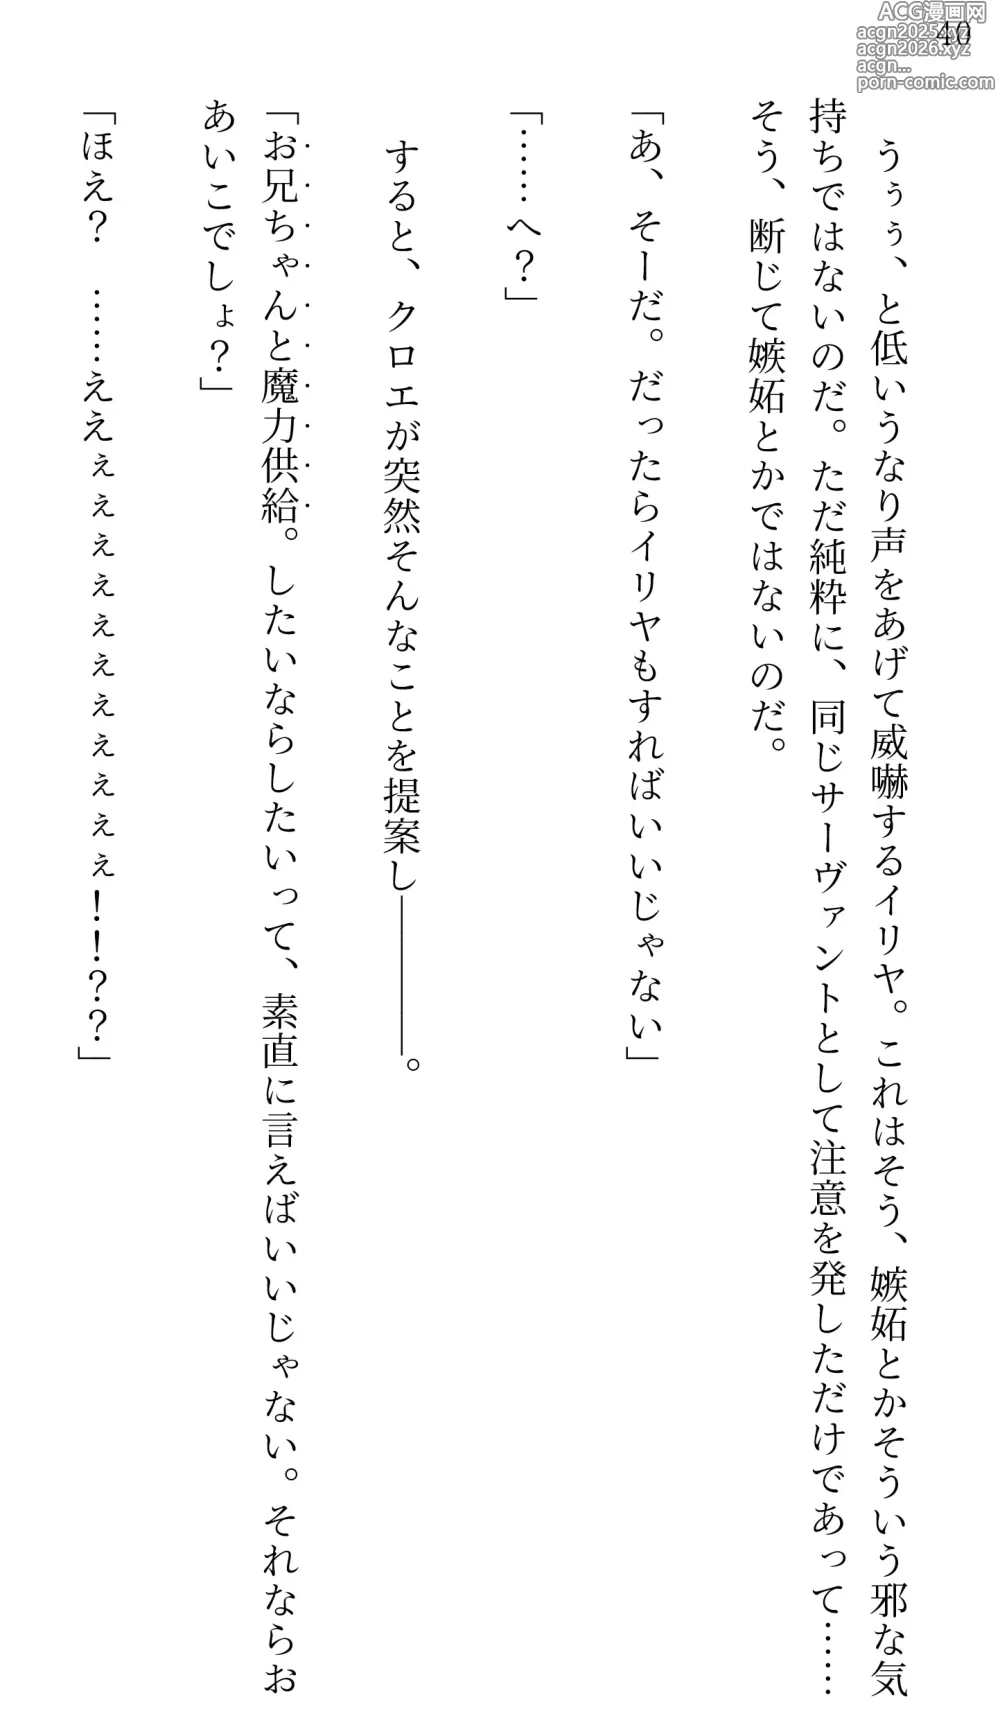 40
ACG漫画网
acgn2025.xyz
acgn2026.xyz
acgn...
porn-comic.com
うぅぅ、と低いうなり声をあげて威嚇するイリヤ。これはそう、嫉妬とかそういう邪な気
持ちではないのだ。ただ純粋に、同じサーヴァントとして注意を発しただけであって……
そう、断じて嫉妬とかではないのだ。
「あ、そーだ。だったらイリヤもすればいいじゃない」
「……へ？」
すると、クロエが突然そんなことを提案し――――。
「お兄ちゃんと魔力供給。したいならしたいって、素直に言えばいいじゃない。それならお
あいこでしょ？」
「ほえ？　……ええぇぇぇぇぇぇぇぇぇぇぇ！！？？」